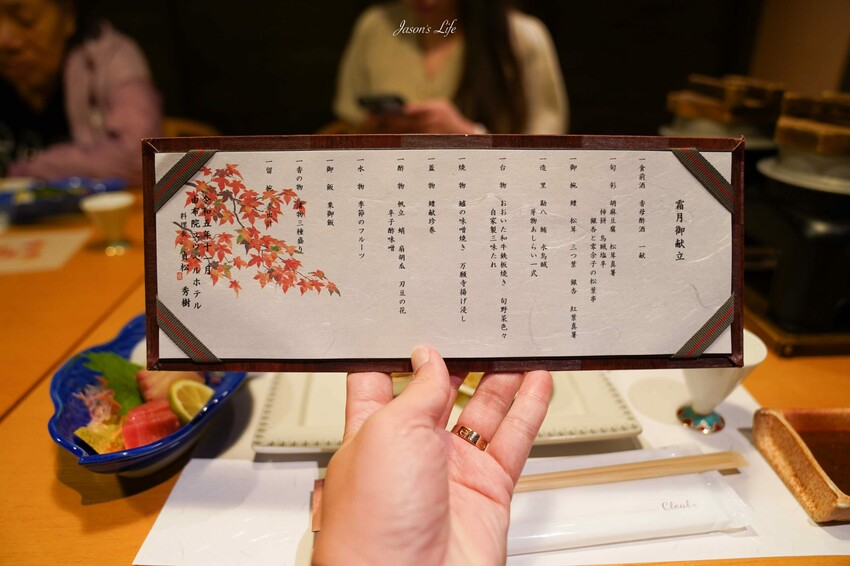 Jason's Life
霜月御献立
一 食前酒 香母酢酒 一献
一 旬彩 胡麻豆腐 松茸真薯
柿餅 烏賊塩辛
銀杏と零余子の松葉串
一 御椀 鱧 松茸 三つ葉 銀杏 紅葉真薯
一 造里 勘八 鮪 水烏賊
芽物あしらい一式
一 台物 おおいた和牛鉄板焼き 旬野菜色々
自家製三味たれ
一 焼物 鱸の味噌焼き 万願寺揚げ浸し
一 蓋物 鱧献珍巻
一 酢物 帆立 蛸 扇胡瓜 刀豆の花
辛子酢味噌
一 水物 季節のフルーツ
一 御飯 栗御飯
一 香の物 漬物三種盛り
一 留椀
令和五年十一月
ホテル
料理長
秀樹
Cloud